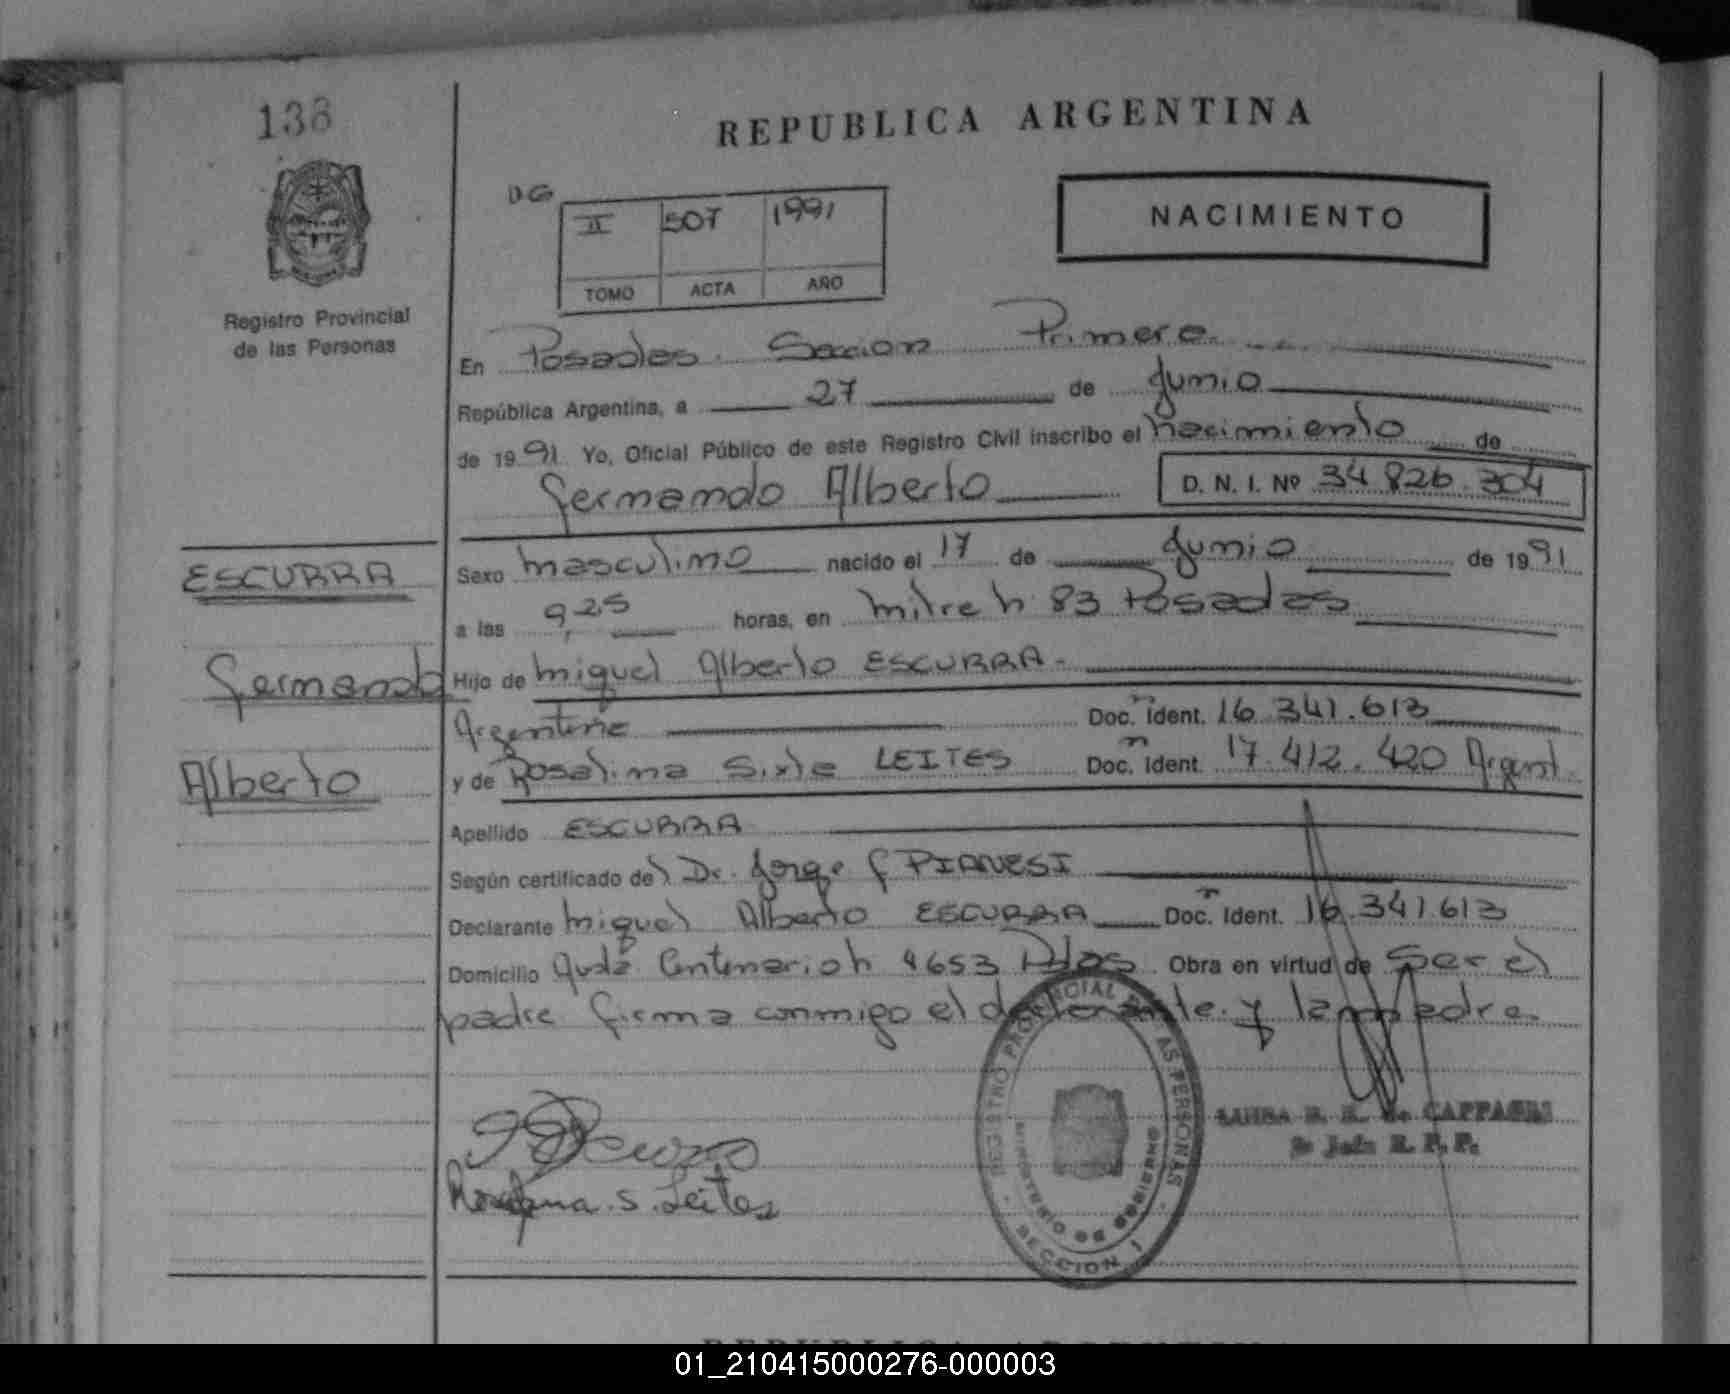 138
REPUBLICA ARGENTINA
DG
II 507 1991
TOMO ACTA AÑO
NACIMIENTO
Registro Provincial
de las Personas
En Posadas Seccion Primera
República Argentina, a 27 de Junio
de 1991 Yo, Oficial Público de este Registro Civil inscribo el nacimiento de
Germando Alberto D. N. I. Nº 34 826.304
ESCURRA
Germando
Alberto
Sexo masculino nacido el 17 de Junio de 1991
a las 9,25 horas, en mitre n 83 Posadas
Hijo de miguel Alberto ESCURRA
Argentina Doc. Ident. 16.341.613
y de Rosalina Sixta LEITES Doc. Ident. 17.412.420 Argent.
Apellido ESCURRA
Según certificado del Dr. Jorge G PIANESI
Declarante miguel Alberto ESCURRA Doc. Ident. 16.341613
Domicilio Avda Centenario n 4653 Pdas Obra en virtud de Ser el
padre firma conmigo el declarante y la madre
Rosalina.S.Leites
REGISTRO PROVINCIAL DE LAS PERSONAS
MINISTERIO DE GOBIERNO
SECCION 1
REPUBLICA ARGENTINA
01_210415000276-000003